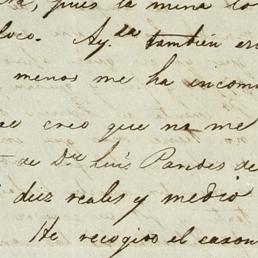 pues la mina lo
loco. Ay.la tambien es
menos me ha incom
se creo que no me
de Dn Luis Pardes de
diez reales y medio
He recogido el cason